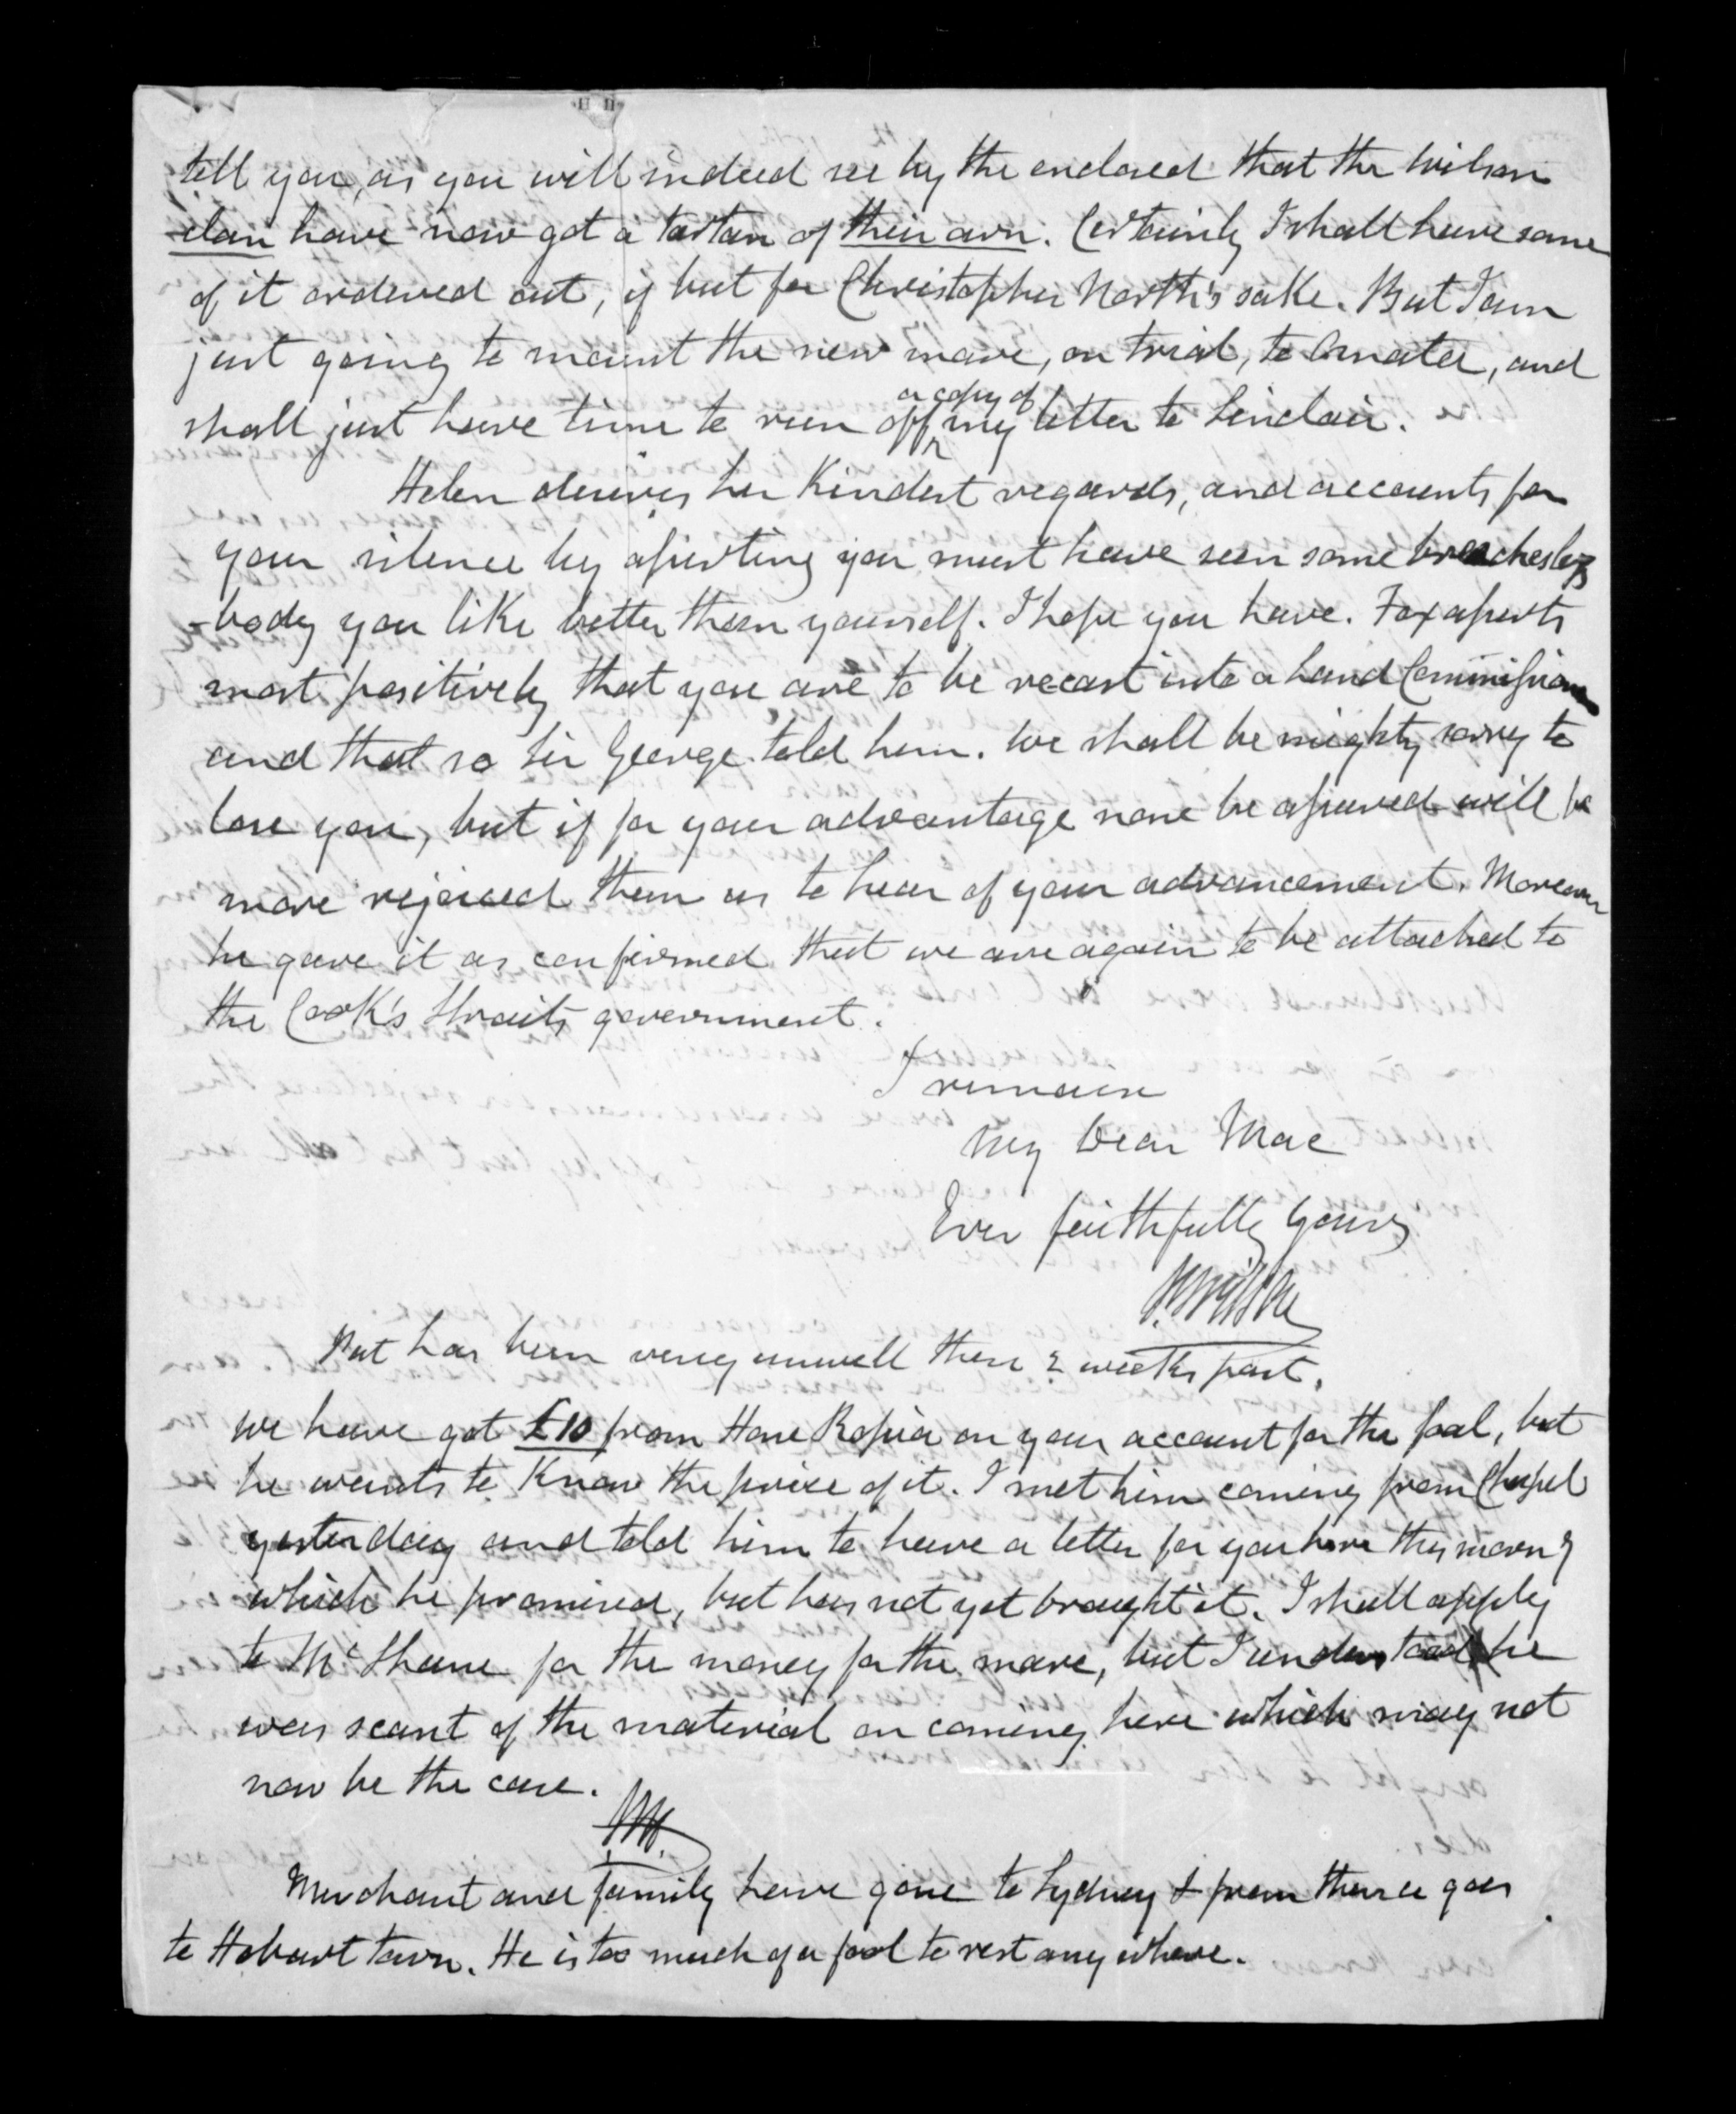 tell you, as you will indeed see by the enclosed that the Wilson
clan have now got a tartan of their own. Certainly I shall have some
of it ordered out, if but for Christopher North's sake. But I am
just going to mount the new mare, on trial, to Omata, and
shall just have time to run off a copy of my letter to Sinclair.
Helen desires her Kindest regards, and accounts for
your silence by asserting you must have seen some breechesless
-body you like better than yourself. I hope you have. Fox asserts
most positively that you are to be recast into a Land Commissioner
and that so Sir George told him. We shall be mighty sorry to
lose you, but if for your advantage none be assured will be
more rejoiced than us to hear of your advancement. Moreover
he gave it as confirmed that we are again to be attached to
the Cook's Straits government.
I remain
My Dear Mac
Ever faithfully Yours
P. Wilson
Pat has been very unwell these 2 weeks past.
We have got £10 from Hone Ropiha on your account for the foal, but
he wants to Know the price of it. I met him coming from Chapel
yesterday and told him to have a letter for you here this morng
which he promised, but has not yet brought it. I shall apply
to McShane for the money for the mare, but I understood he
was scant of the material on coming here which may not
now be the case.
P.W.
Merchant and family have gone to Sydney & from thence goes
to Hobart town. He is too much of a fool to rest any where.